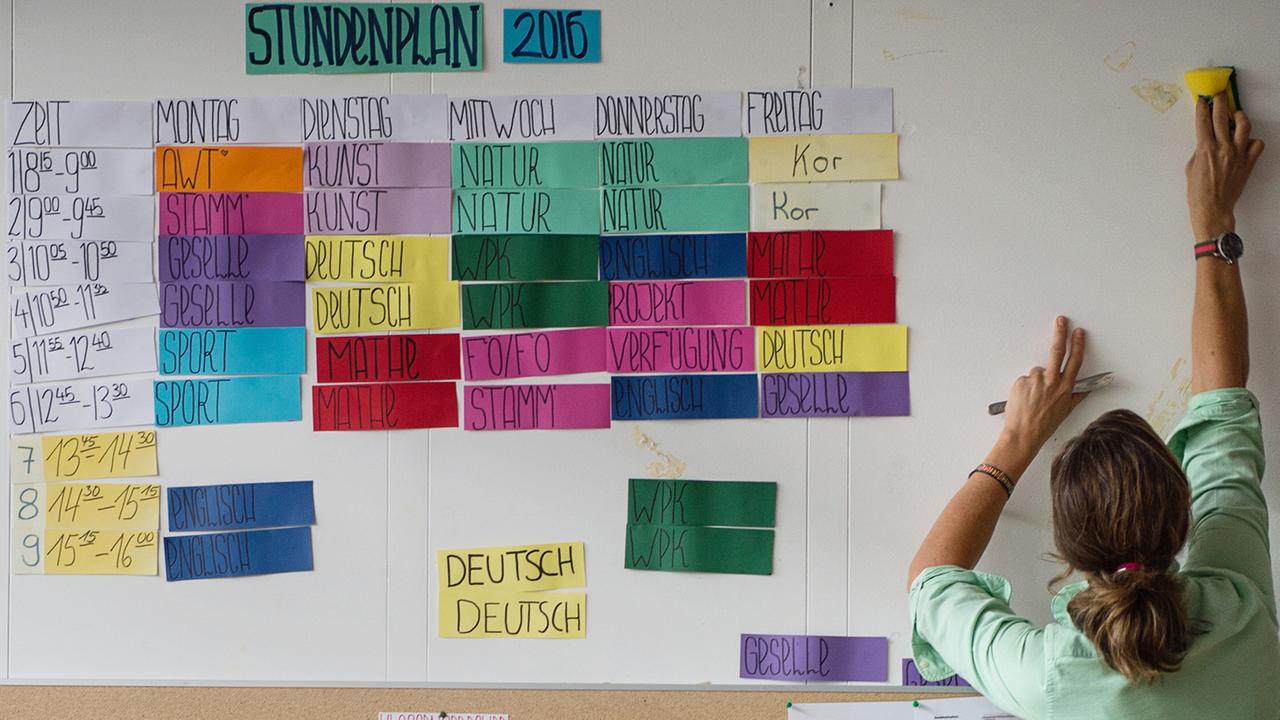 STUNDENPLAN 2016
ZEIT MONTAG DIENSTAG MITTWOCH DONNERSTAG FREITAG
1|8¹⁵-9⁰⁰ AWT KUNST NATUR NATUR Kor
2|9⁰⁰-9⁴⁵ STAMM' KUNST NATUR NATUR Kor
3|10⁰⁵-10⁵⁰ GESELLE DEUTSCH WPK ENGLISCH MATHE
4|10⁵⁰-11³⁵ GESELLE DEUTSCH WPK PROJEKT MATHE
5|11⁵⁵-12⁴⁰ SPORT MATHE FÖ/FO VERFÜGUNG DEUTSCH
6|12⁴⁵-13³⁰ SPORT MATHE STAMM' ENGLISCH GESELLE
7 13⁴⁵-14³⁰
8 14³⁰-15¹⁵ ENGLISCH WPK
9 15¹⁵-16⁰⁰ ENGLISCH WPK
DEUTSCH
DEUTSCH
GESELLE